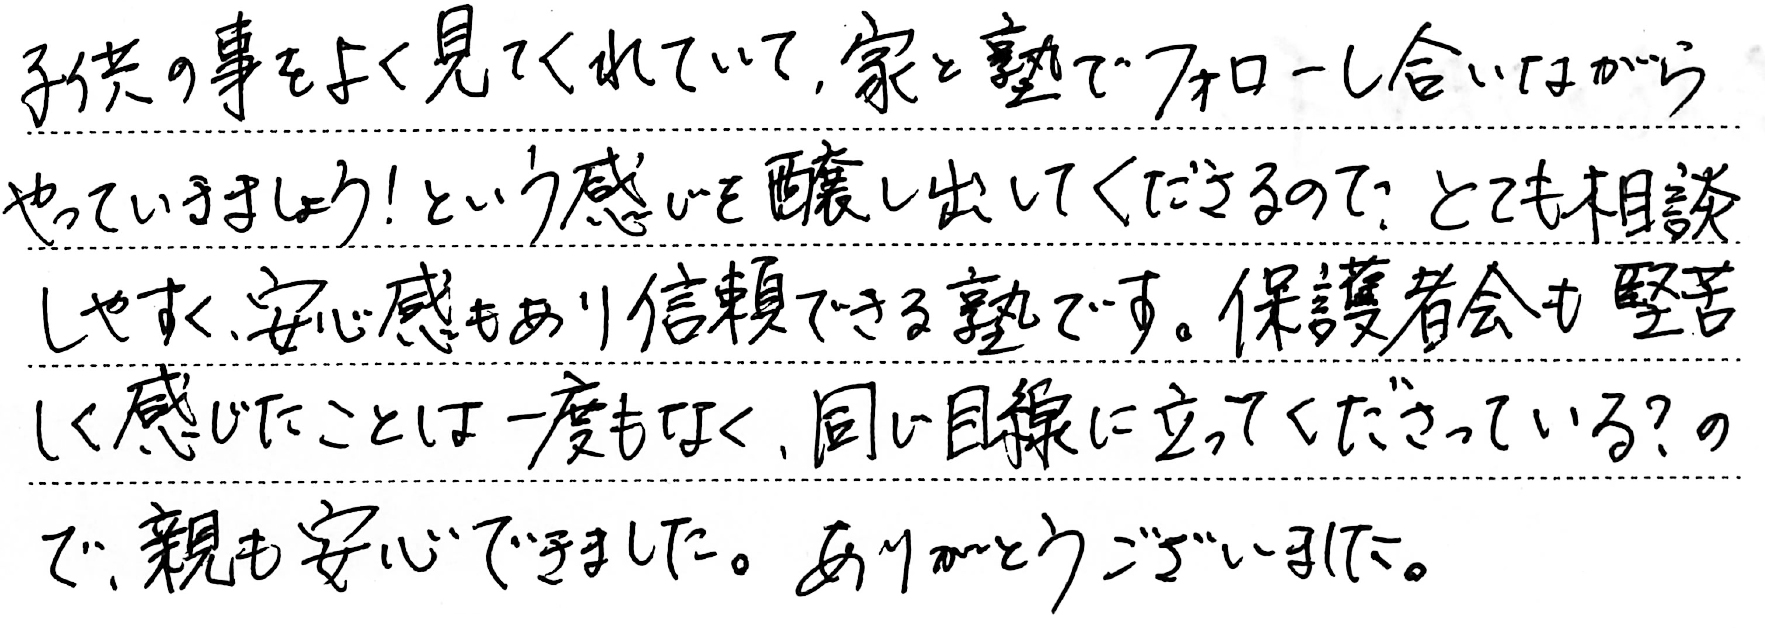 子供の事をよく見てくれていて、家と塾でフォローし合いながら
やっていきましょう！という感じを醸し出してくださるので、とても相談
しやすく、安心感もあり信頼できる塾です。保護者会も堅苦
しく感じたことは一度もなく、同じ目線に立ってくださっている？の
で、親も安心できました。ありがとうございました。